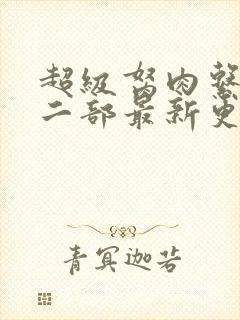 超級胬肉繫
二部最新更
青冥迦若